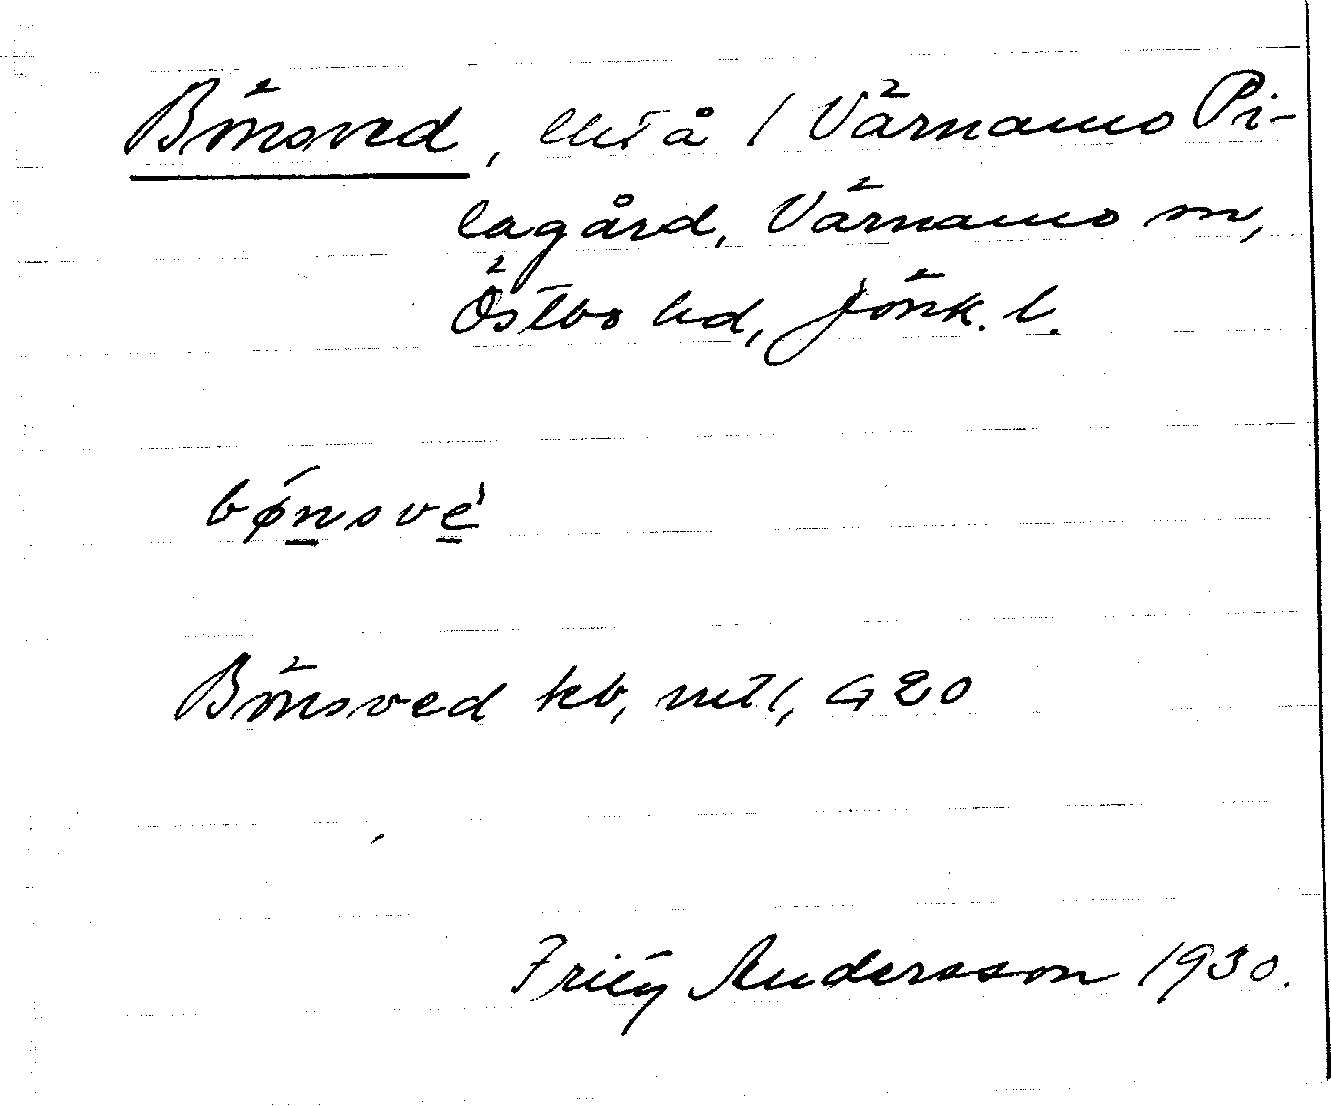 Bönsved, lht å 1 Värnamo Pi-
lagård, Värnamo sn,
Östbo hd, Jönk. l.
bǿnsvè
Bönsved kb, mtl, G 20
Fritz Andersson 1930.